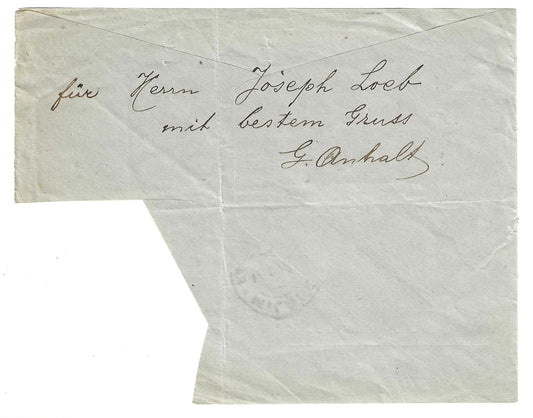 für Herrn Joseph Loeb
mit bestem Gruss
G. Anhalt